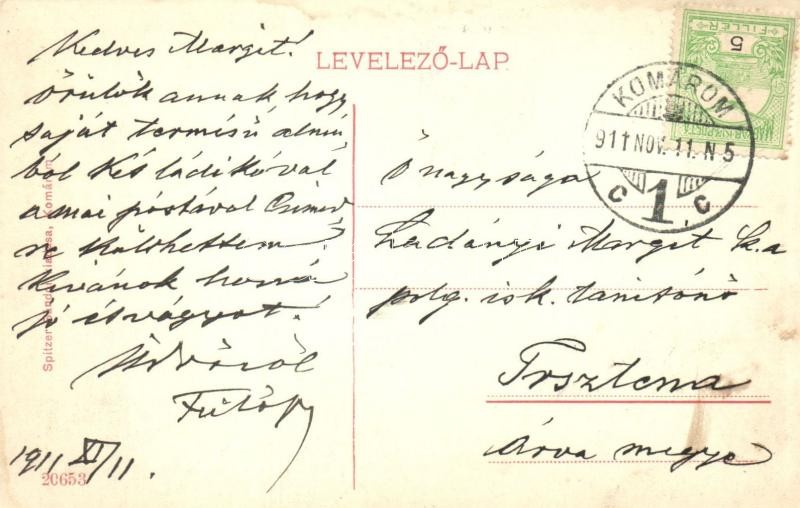 LEVELEZŐ-LAP
Kedves Margit!
Örülök annak hogy
saját termésű almá
ból két ládikóval
a mai postával Czimed
re küldhettem
Kivánok hozzá
jó étvágyat!
Üdvözöl
Fülöp
1911 XI/11.
20653
Spitzer Sándor kiadása, Komárom
5
FILLÉR
MAGYAR KIR. POSTA
KOMÁROM
911 NOV. 11. N 5
C 1 C
Ő nagysága
Ladányi Margit k.a
polg. isk. tanitónő
Trsztena
Árva megye